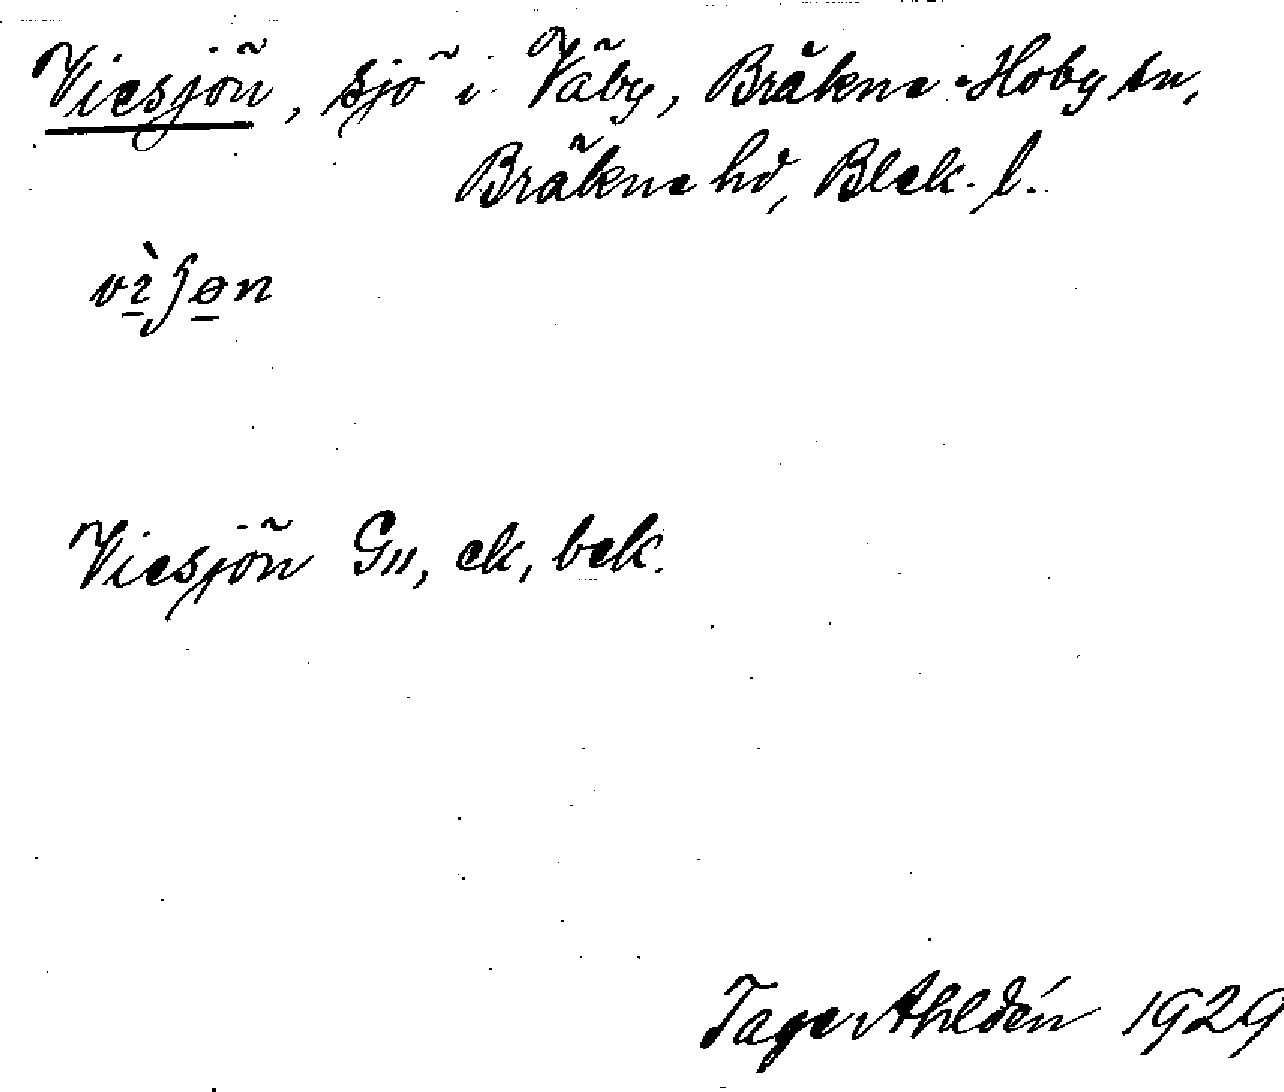 Viesjön, sjö i Väby, Bräkne-Hoby sn,
Bräkne hd, Blek. l.
vìʃøn
Viesjön G11, ek, bek.
Tage Ahldén 1929